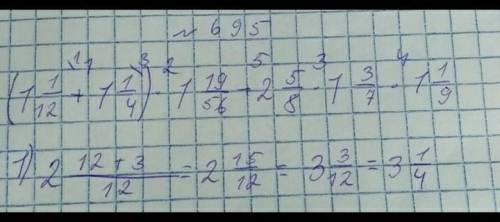 № 695
(1 1/12 + 1 1/4) · 1 19/56 - 2 5/8 · 1 3/7 · 1 1/9
1) 2 12+3/12 = 2 15/12 = 3 3/12 = 3 1/4